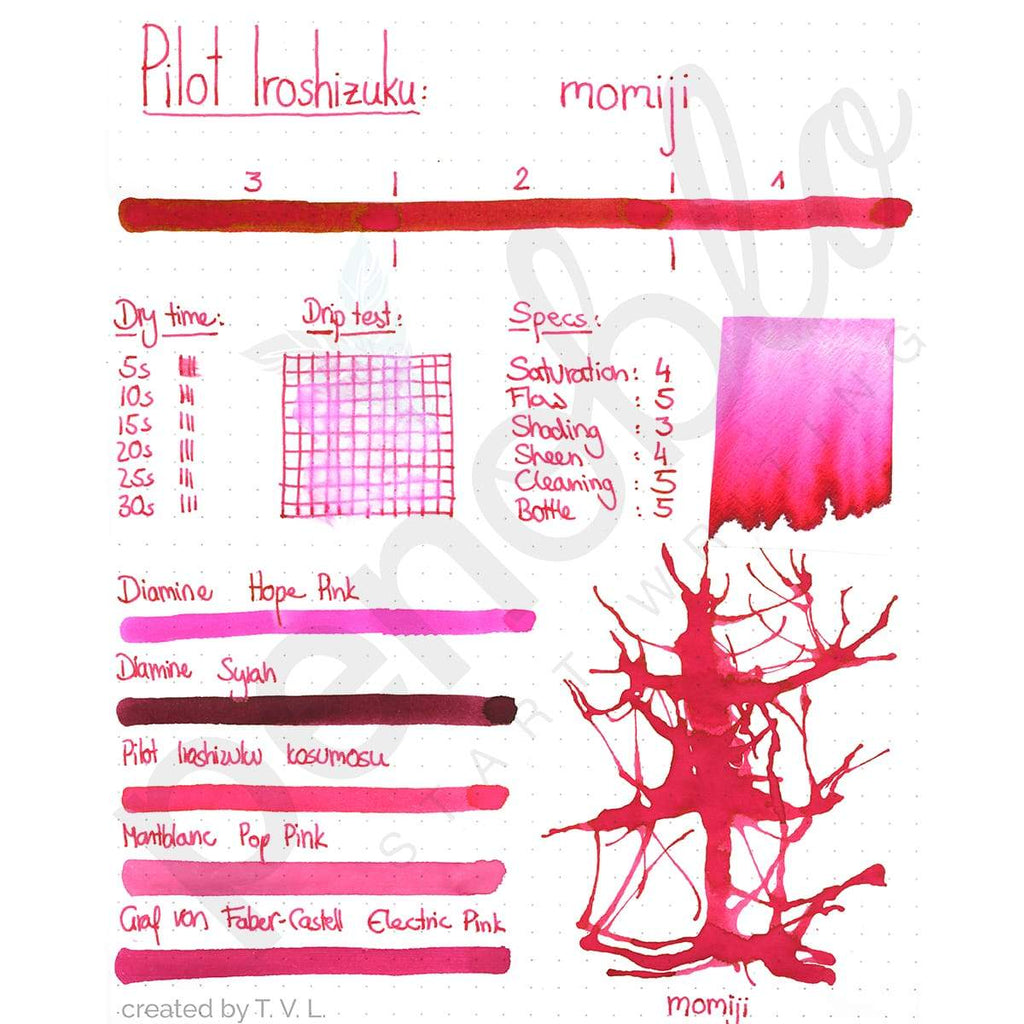 Pilot Iroshizuku: momiji
3 | 2 | 1
Dry time: Drip test: Specs:
5s
10s
15s
20s
25s
30s
Saturation: 4
Flow : 5
Shading : 3
Sheen : 4
Cleaning : 5
Bottle : 5
Diamine Hope Pink
Diamine Syrah
Pilot Iroshizuku kosumosu
Montblanc Pop Pink
Graf von Faber-Castell Electric Pink
momiji
created by T. V. L.
penoblo
START WRITING